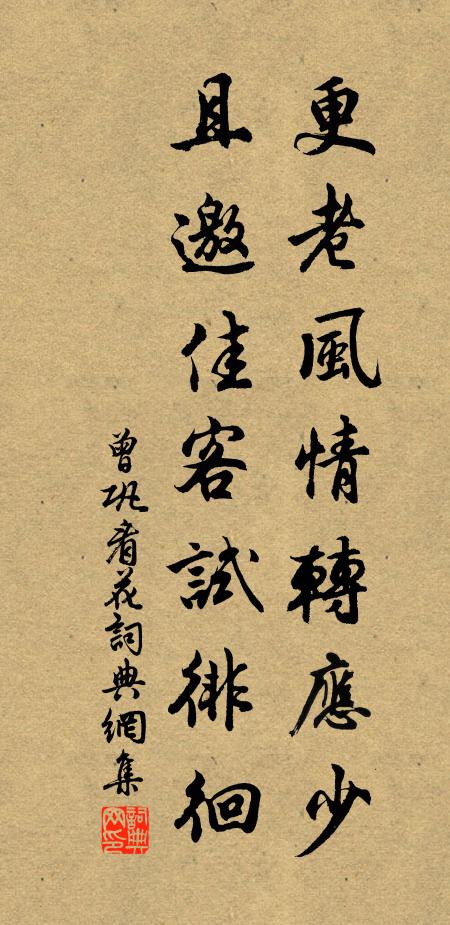 更老風情轉應少
且邀佳客試徘徊
曾鞏看花詞典網集
詞典網印